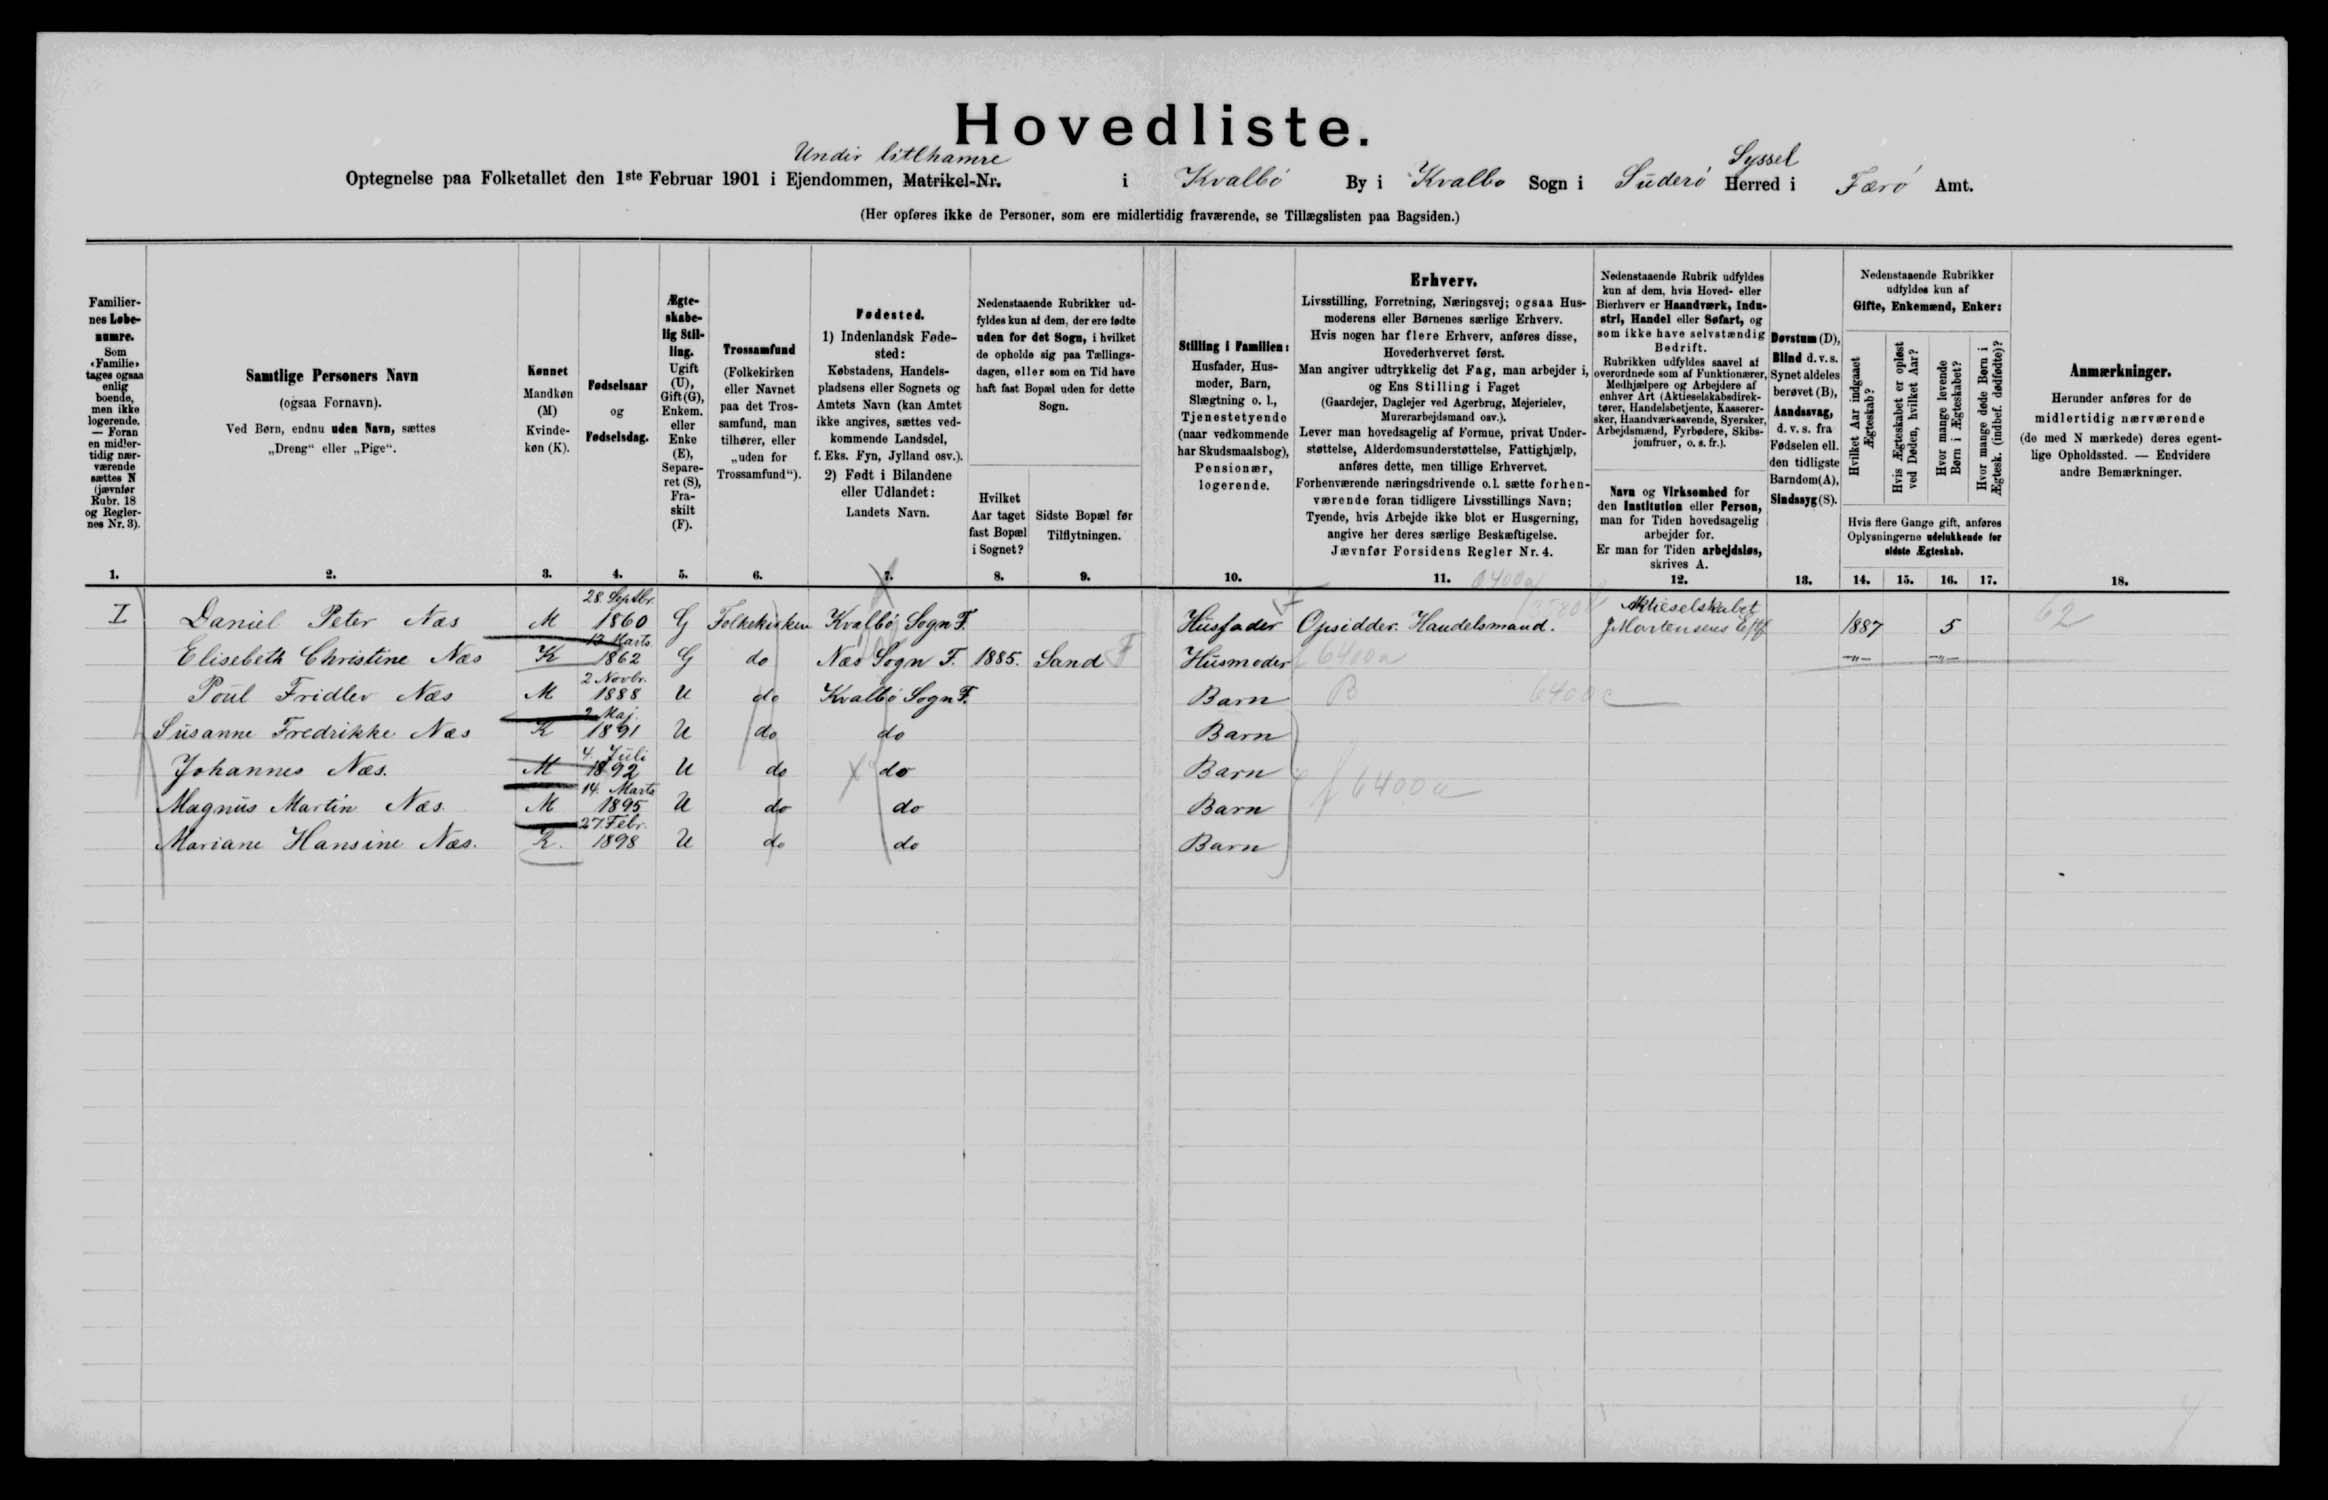 Hovedliste.
Undir litlhamre
Syssel
Optegnelse paa Folketallet den 1ste Februar 1901 i Ejendommen, Matrikel-Nr. i Kvalbö By i Kvalbo Sogn i Suderö Herred i Færö Amt.
(Her opføres ikke de Personer, som ere midlertidig fraværende, se Tillægslisten paa Bagsiden.)
Familier-
nes Løbe-
numre.
Som
«Familie»
tages ogsaa
enlig
boende,
men ikke
logerende.
— Foran
en midler-
tidig nær-
værende
sættes N
(jævnfør
Rubr. 18
og Regler-
nes Nr. 3).
1.
Samtlige Personers Navn
(ogsaa Fornavn).
Ved Børn, endnu uden Navn, sættes
„Dreng“ eller „Pige“.
2.
Kønnet
Mandkøn
(M)
Kvinde-
køn (K).
3.
Fødselsaar
og
Fødselsdag.
4.
Ægte-
skabe-
lig Stil-
ling.
Ugift
(U),
Gift (G),
Enkem.
eller
Enke
(E),
Separe-
ret (S),
Fra-
skilt
(F).
5.
Trossamfund
(Folkekirken
eller Navnet
paa det Tros-
samfund, man
tilhører, eller
„uden for
Trossamfund“).
6.
Fødested.
1) Indenlandsk Føde-
sted:
Købstadens, Handels-
pladsens eller Sognets og
Amtets Navn (kan Amtet
ikke angives, sættes ved-
kommende Landsdel,
f. Eks. Fyn, Jylland osv.).
2) Født i Bilandene
eller Udlandet:
Landets Navn.
7.
Nedenstaaende Rubrikker ud-
fyldes kun af dem, der ere fødte
uden for det Sogn, i hvilket
de opholde sig paa Tællings-
dagen, eller som en Tid have
haft fast Bopæl uden for dette
Sogn.
Hvilket
Aar taget
fast Bopæl
i Sognet?
8.
Sidste Bopæl før
Tilflytningen.
9.
Stilling i Familien:
Husfader, Hus-
moder, Barn,
Slægtning o. l.,
Tjenestetyende
(naar vedkommende
har Skudsmaalsbog),
Pensionær,
logerende.
10.
Erhverv.
Livsstilling, Forretning, Næringsvej; ogsaa Hus-
moderens eller Børnenes særlige Erhverv.
Hvis nogen har flere Erhverv, anføres disse,
Hovederhvervet først.
Man angiver udtrykkelig det Fag, man arbejder i,
og Ens Stilling i Faget
(Gaardejer, Daglejer ved Agerbrug, Mejerielev,
Murerarbejdsmand osv.).
Lever man hovedsagelig af Formue, privat Under-
støttelse, Alderdomsunderstøttelse, Fattighjælp,
anføres dette, men tillige Erhvervet.
Forhenværende næringsdrivende o. l. sætte forhen-
værende foran tidligere Livsstillings Navn;
Tyende, hvis Arbejde ikke blot er Husgerning,
angive her deres særlige Beskæftigelse.
Jævnfør Forsidens Regler Nr. 4.
11.
Nedenstaaende Rubrik udfyldes
kun af dem, hvis Hoved- eller
Bierhverv er Haandværk, Indu-
stri, Handel eller Søfart, og
som ikke have selvstændig
Bedrift.
Rubrikken udfyldes saavel af
overordnede som af Funktionærer,
Medhjælpere og Arbejdere af
enhver Art (Aktieselskabsdirek-
tører, Handelsbetjente, Kasserer-
sker, Haandværkssvende, Syersker,
Arbejdsmænd, Fyrbødere, Skibs-
jomfruer, o. s. fr.).
Navn og Virksomhed for
den Institution eller Person,
man for Tiden hovedsagelig
arbejder for.
Er man for Tiden arbejdsløs,
skrives A.
12.
Døvstum (D),
Blind d. v. s.
Synet aldeles
berøvet (B),
Aandssvag,
d. v. s. fra
Fødselen ell.
den tidligste
Barndom (A),
Sindssyg (S).
13.
Nedenstaaende Rubrikker
udfyldes kun af
Gifte, Enkemænd, Enker:
Hvilket Aar indgaaet
Ægteskab?
Hvis Ægteskabet er opløst
ved Døden, hvilket Aar?
Hvor mange levende
Børn i Ægteskabet?
Hvor mange døde Børn i
Ægtesk. (indbef. dødfødte)?
Hvis flere Gange gift, anføres
Oplysningerne udelukkende for
sidste Ægteskab.
14. 15. 16. 17.
Anmærkninger.
Herunder anføres for de
midlertidig nærværende
(de med N mærkede) deres egent-
lige Opholdssted. — Endvidere
andre Bemærkninger.
18.
6400a
I Daniel Peter Næs M 28. Septbr. 1860 G Folkekirken Kvalbö Sogn F. Husfader Opsidder. Handelsmand. Aktieselskabet J Mortensens Eftf. 1887 5 62
Elisebeth Christine Næs K 13 Marts 1862 G do Næs Sogn F. 1885. Sand F Husmoder 6400a —"— —"—
Poul Fridlev Næs M 2 Novbr. 1888 U do Kvalbö Sogn F. Barn B 6400c
Susanne Fredrikke Næs K 2 Maj. 1891 U do do Barn
Johannes Næs. M 4. Juli 1892 U do do Barn 6400a
Magnus Martin Næs. M 14. Marts 1895 U do do Barn
Mariane Hansine Næs. K. 27. Febr. 1898 U do do Barn